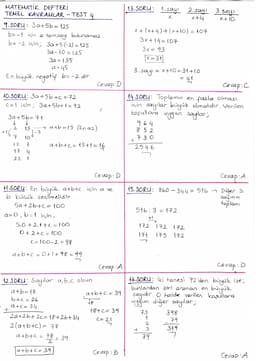 MATEMATİK DEFTERİ
TEMEL KAVRAMLAR - TEST 4
9.SORU: 3a+5b=125
b=-1 için a tamsayı bulunamaz
b=-2 için; 3a+5(-2)=125
3a-10=125
3a=135
a=45
En büyük negatif b=-2 dir
Cevap:D
10.SORU: 3a+5b+c=72
c=1 için; 3a+5b+1=72
3a+5b=71
a+b+c=15+1=16
Cevap:A
11.SORU: En büyük a+b+c için a ve
b küçük seçilmelidir
5a+2b+c=100
a=0, b=1 için;
5.0+2.1+c=100
0+2+c=100
c=100-2=98
a+b+c=0+1+98=99
Cevap:A
12.SORU: Sayılar a,b,c olsun
a+b=18
b+c=26
a+c=34
2a+2b+2c=18+26+34
2(a+b+c)=78
a+b+c=39
a+b+c=39
18+c=39
c=21
Cevap:B
13.SORU: 1.sayı 2.sayı 3.sayı
x x+4 x+10
x+(x+4)+(x+10)=107
3x+14=107
3x=93
x=31
3.sayı = x+10=31+10
=41
Cevap:C
14.SORU: Toplamın en fazla olması
için sayılar büyük olmalıdır. Verilen
koşullara uygun sayılar;
964
852
+730
2546
Cevap:D
15.SORU: 860-344=516 → Diğer 3
sayının
toplamı
516:3=172
172 172 172
171 173 172
Cevap:A
16.SORU: İki tanesi 72'den büyük ise;
bunlardan biri alınan en büyük
sayıdır. O halde verilen koşullara
uygun diğer sayılar;
73 398
1 79
2 319
+3
79
Cevap:A